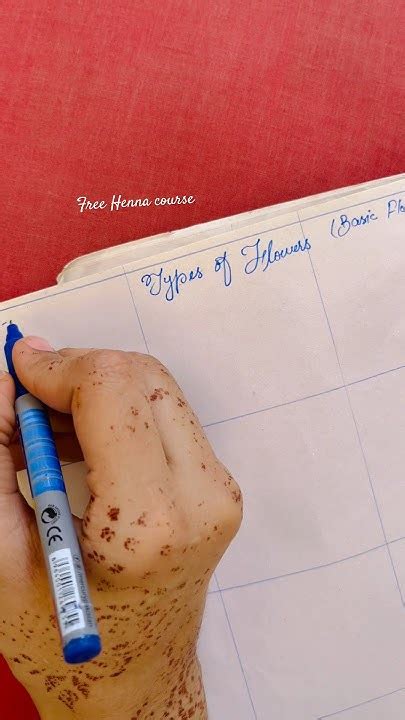 Free Henna course
Types of Flowers
(Basic
CE